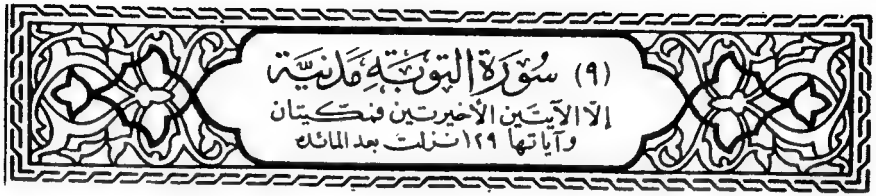 (٩) سُورَةُ التوبَةِ مَدَنيَّة
إلّا الآيتَين الأخيرتَين فمَكّيتان
وآياتها ١٢٩ نزلت بعد المائدة